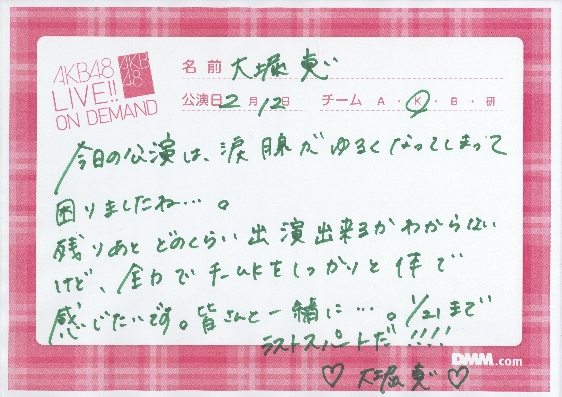 AKB48
LIVE!!
ON DEMAND
AKB
48
名前 大堀 恵
公演日 2月12日 チーム A・K・B・研
今日の公演は、涙腺がゆるくなってしまって
困りましたね…。
残りあと どのくらい 出演出来るかわからない
けど、全力でチームKをしっかりと体で
感じたいです。皆さんと一緒に…。1/21まで
ラストスパートだ!!!!
♡大堀恵♡
DMM.com